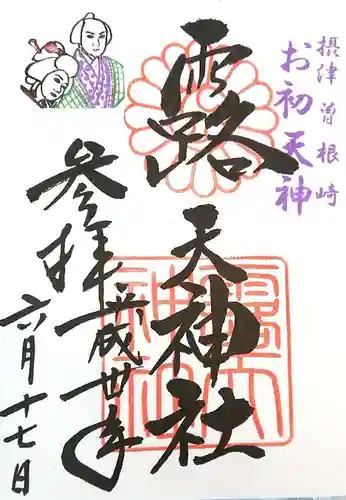 摂津 曽根崎
お初天神
露
天神社
参拝
平成卅年
六月十七日